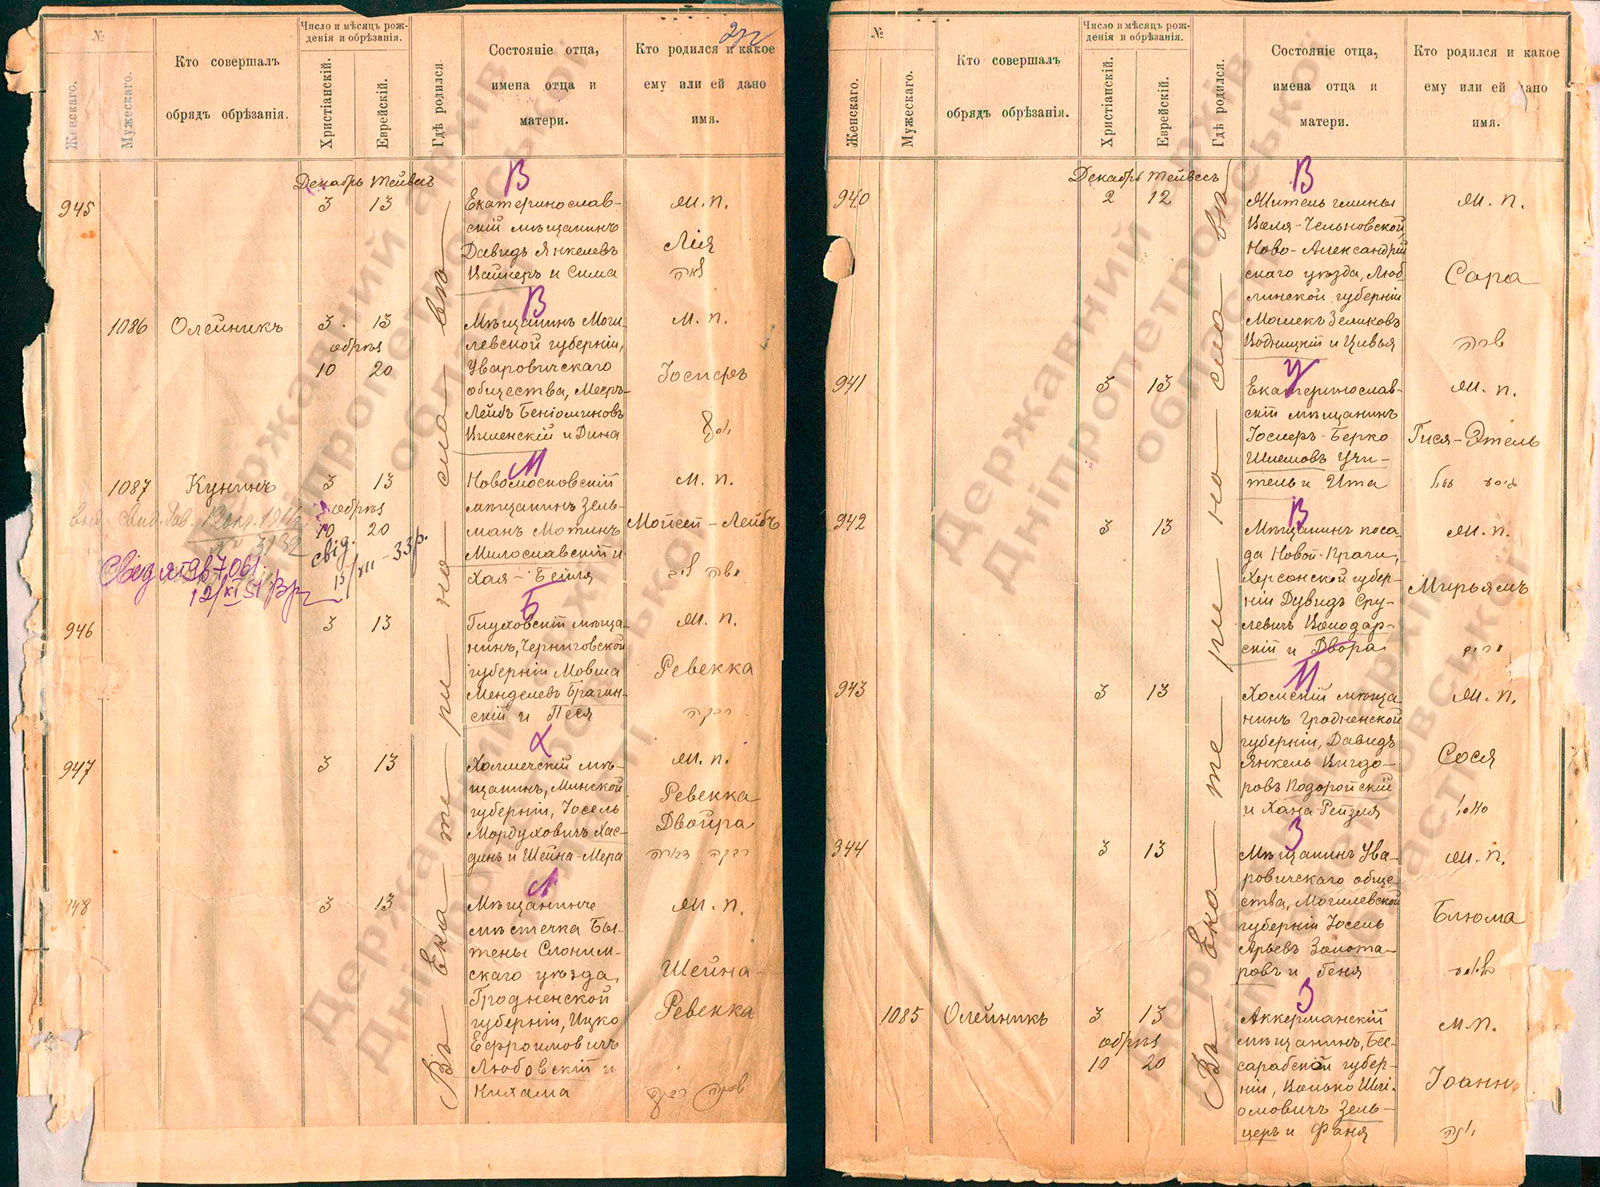 №
Женскаго.
Мужескаго.
Кто совершалъ
обрядъ обрѣзанія.
Число и мѣсяцъ рож-
денія и обрѣзанія.
Христіанскій.
Еврейскій.
Гдѣ родился
Состояніе отца,
имена отца и
матери.
Кто родился и какое
ему или ей дано
имя.
Декабрь Тейвесъ
В
945
3 13
Екатеринослав-
скій мѣщанинъ
Давидъ Янкелевъ
Вайнеръ и Сима
М. п.
Лія
לאה
В
1086 Олейникъ
3 13
обрѣз
10 20
Мѣщанинъ Моги-
левской губерніи,
Уваровичскаго
общества, Мееръ-
Лейбъ Беніоминовъ
Виленскій и Дина
М. п.
Іосифъ
יוסף
М
1087 Кунинъ
3 13
обрѣз
10 20
Новомосковскій
мѣщанинъ Зель-
манъ Мотинъ
Милославскій и
Хая-Бейля
М. п.
Мойсей-Лейбъ
משה ליב
свід.
Б
946
3 13
Глуховскій мѣща-
нинъ, Черниговской
губерніи Мовша
Менделевъ Брагин-
скій и Песя
М. п.
Ревекка
רבקה
Х
947
3 13
Холмечскій мѣ-
щанинъ, Минской
губерніи, Іосель
Мордуховичъ Хас-
динъ и Шейна-Мера
М. п.
Ревекка
Двойра
רבקה דבורה
Л
948
3 13
Мѣщанинъ
мѣстечка Бы-
тены Слоним-
скаго уѣзда,
Гродненской
губерніи, Ицко
Ефроимовичъ
Любовскій и
Нихама
М. п.
Шейна-
Ревекка
Въ Ека те ри но сла вѣ
№
Женскаго.
Мужескаго.
Кто совершалъ
обрядъ обрѣзанія.
Число и мѣсяцъ рож-
денія и обрѣзанія.
Христіанскій.
Еврейскій.
Гдѣ родился.
Состояніе отца,
имена отца и
матери.
Кто родился и какое
ему или ей дано
имя.
Декабрь Тейвесъ
В
940
2 12
Житель гмины
Воля-Чельновской
Ново-Александрій
скаго уѣзда, Люб
линской губерніи
Мошекъ Зеликовъ
Водницкій и Цивья
М. п.
Сара
שרה
У
941
3 13
Екатеринослав-
скій мѣщанинъ
Іосифъ-Берко
Шлемовъ Учи-
тель и Ита
М. п.
Гися-Этель
В
942
3 13
Мѣщанинъ поса
да Новой-Праги,
Херсонской губер-
ніи Дувидъ Сру-
левичъ Володар-
скій и Двора
М. п.
Мирьямъ
מרים
П
943
3 13
Хомскій мѣща
нинъ Гродненской
губерніи, Давидъ
Янкель Вигдо-
ровъ Подоройскій
и Хана-Рейзля
М. п.
Сося
З
944
3 13
Мѣщанинъ Ува-
ровичскаго обще-
ства, Могилевской
губерніи Іосель
Арьевъ Золота-
ровъ и Геня
М. п.
Блюма
בלומא
З
1085 Олейникъ
3 13
обрѣз
10 20
Аккерманскій
мѣщанинъ, Бес-
сарабской губер-
ніи, Волько Шлі-
омовичъ Зель-
церъ и Фаня
М. п.
Іоанн
יונה
Въ Ека те ри но сла вѣ
Державний архів
Дніпропетровської
області